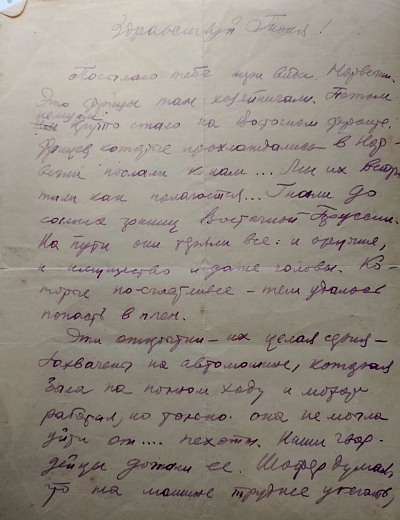 Здравствуй Тоня!
Посылаю тебе виды Норвегии.
Это фрицы там хозяйничали. Потом
немцам круто стало на Восточном фронте.
Фрицев которые прохлаждались в Нор-
вегии послали к нам... Мы их встре-
тили как полагается... Гнали до
самых границ Восточной Пруссии.
На пути они теряли все: и оружие,
и имущество и даже головы. Ко-
торые по-счастливее – тем удалось
попасть в плен.
Эти открытки – их целая серия –
захвачены на автомашине, которая
шла на полном ходу и мотор
работал, но только она не могла
уйти от.... пехоты. Наши гвар-
дейцы догнали ее. Шофер думал,
что на машине труднее убежать,